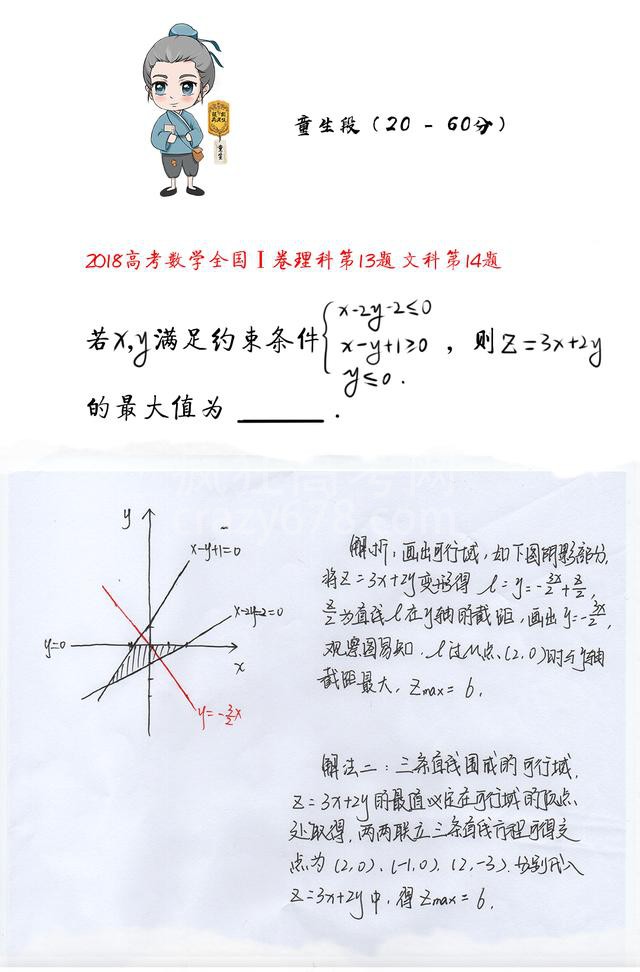 童生段（20 - 60分）
童生
2018高考数学全国Ⅰ卷理科第13题 文科第14题
若x,y满足约束条件{x-2y-2≤0
x-y+1≥0 ，则z=3x+2y
y≤0.
的最大值为 ______ .
疯狂高考网
crazy678.com
y
x-y+1=0
x-2y-2=0
y=0
x
y=-3/2x
解析：画出可行域，如下图阴影部分，
将z=3x+2y变形得 l=y=-3x/2+z/2，
z/2为直线l在y轴的截距，画出y=-3x/2，
观察图易知，l过M点(2,0)时与y轴
截距最大，zmax=6.
解法二：三条直线围成的可行域，
z=3x+2y的最值必定在可行域的顶点
处取得，两两联立三条直线方程可得交
点为(2,0)、(-1,0)、(2,-3).分别代入
z=3x+2y中，得zmax=6.